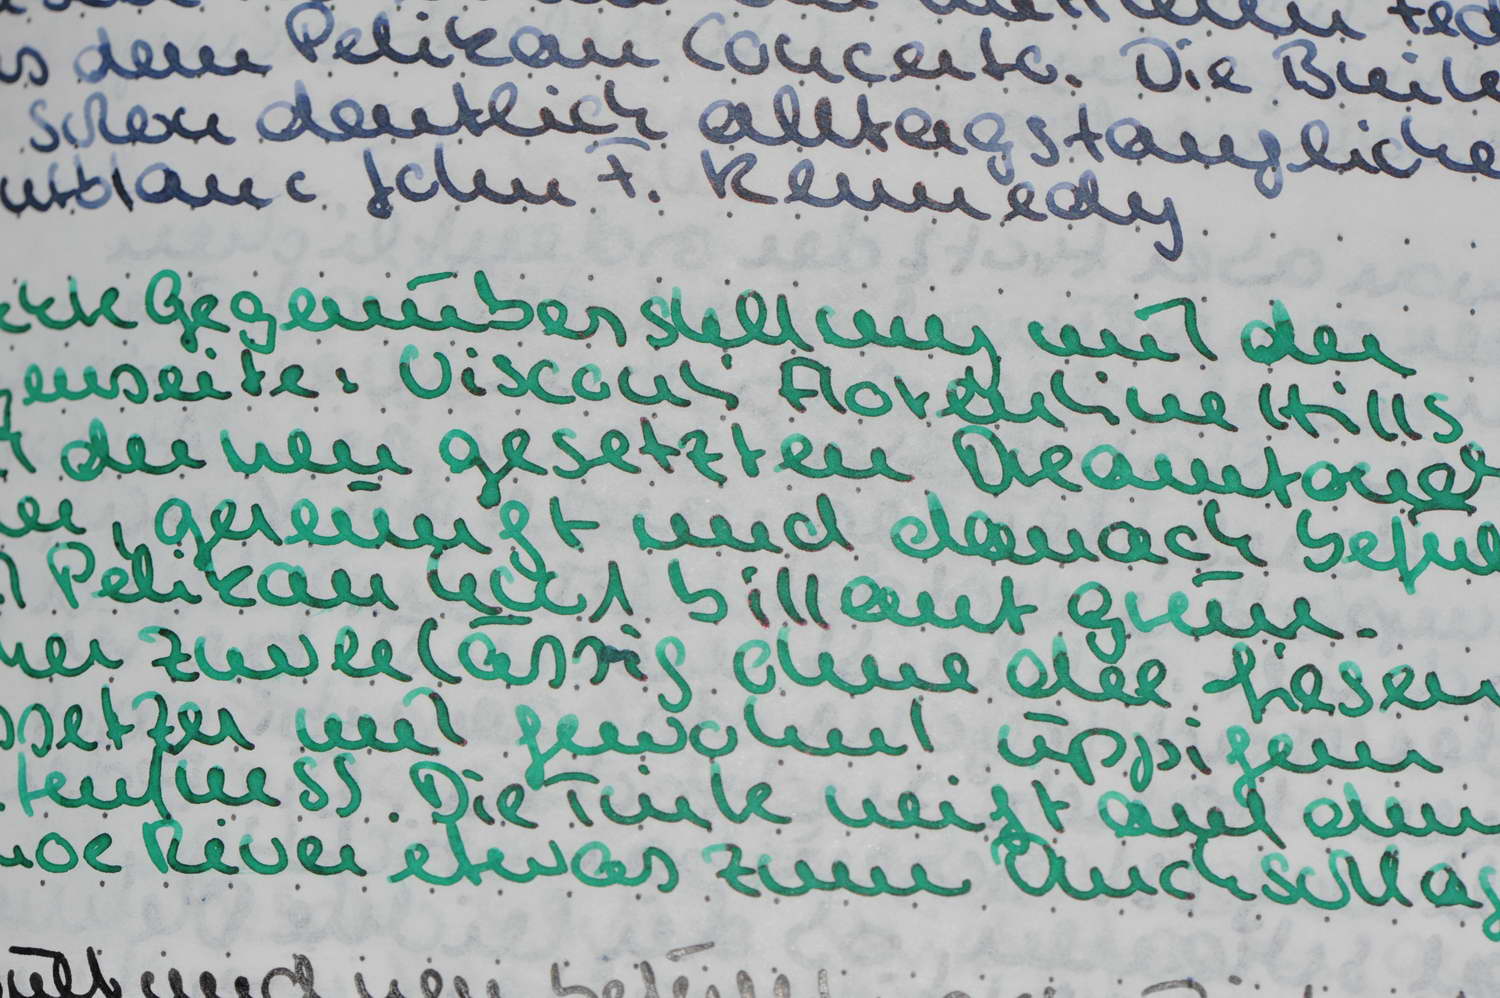 dem Pelikan Concerto. Die Breite
schon deutlich alltagstauglicher
John F. Kennedy
Gegenüberstellung mit der
Viscount Florentine Hills
der neu gesetzten Dreamtouch
gereinigt und danach
Pelikan 4001 billant grün.
zuverlässig ohne die fiesen
mit gewohnt üppigem
Die Tinte neigt auf dem
River etwas zum Durchschlag
und neu